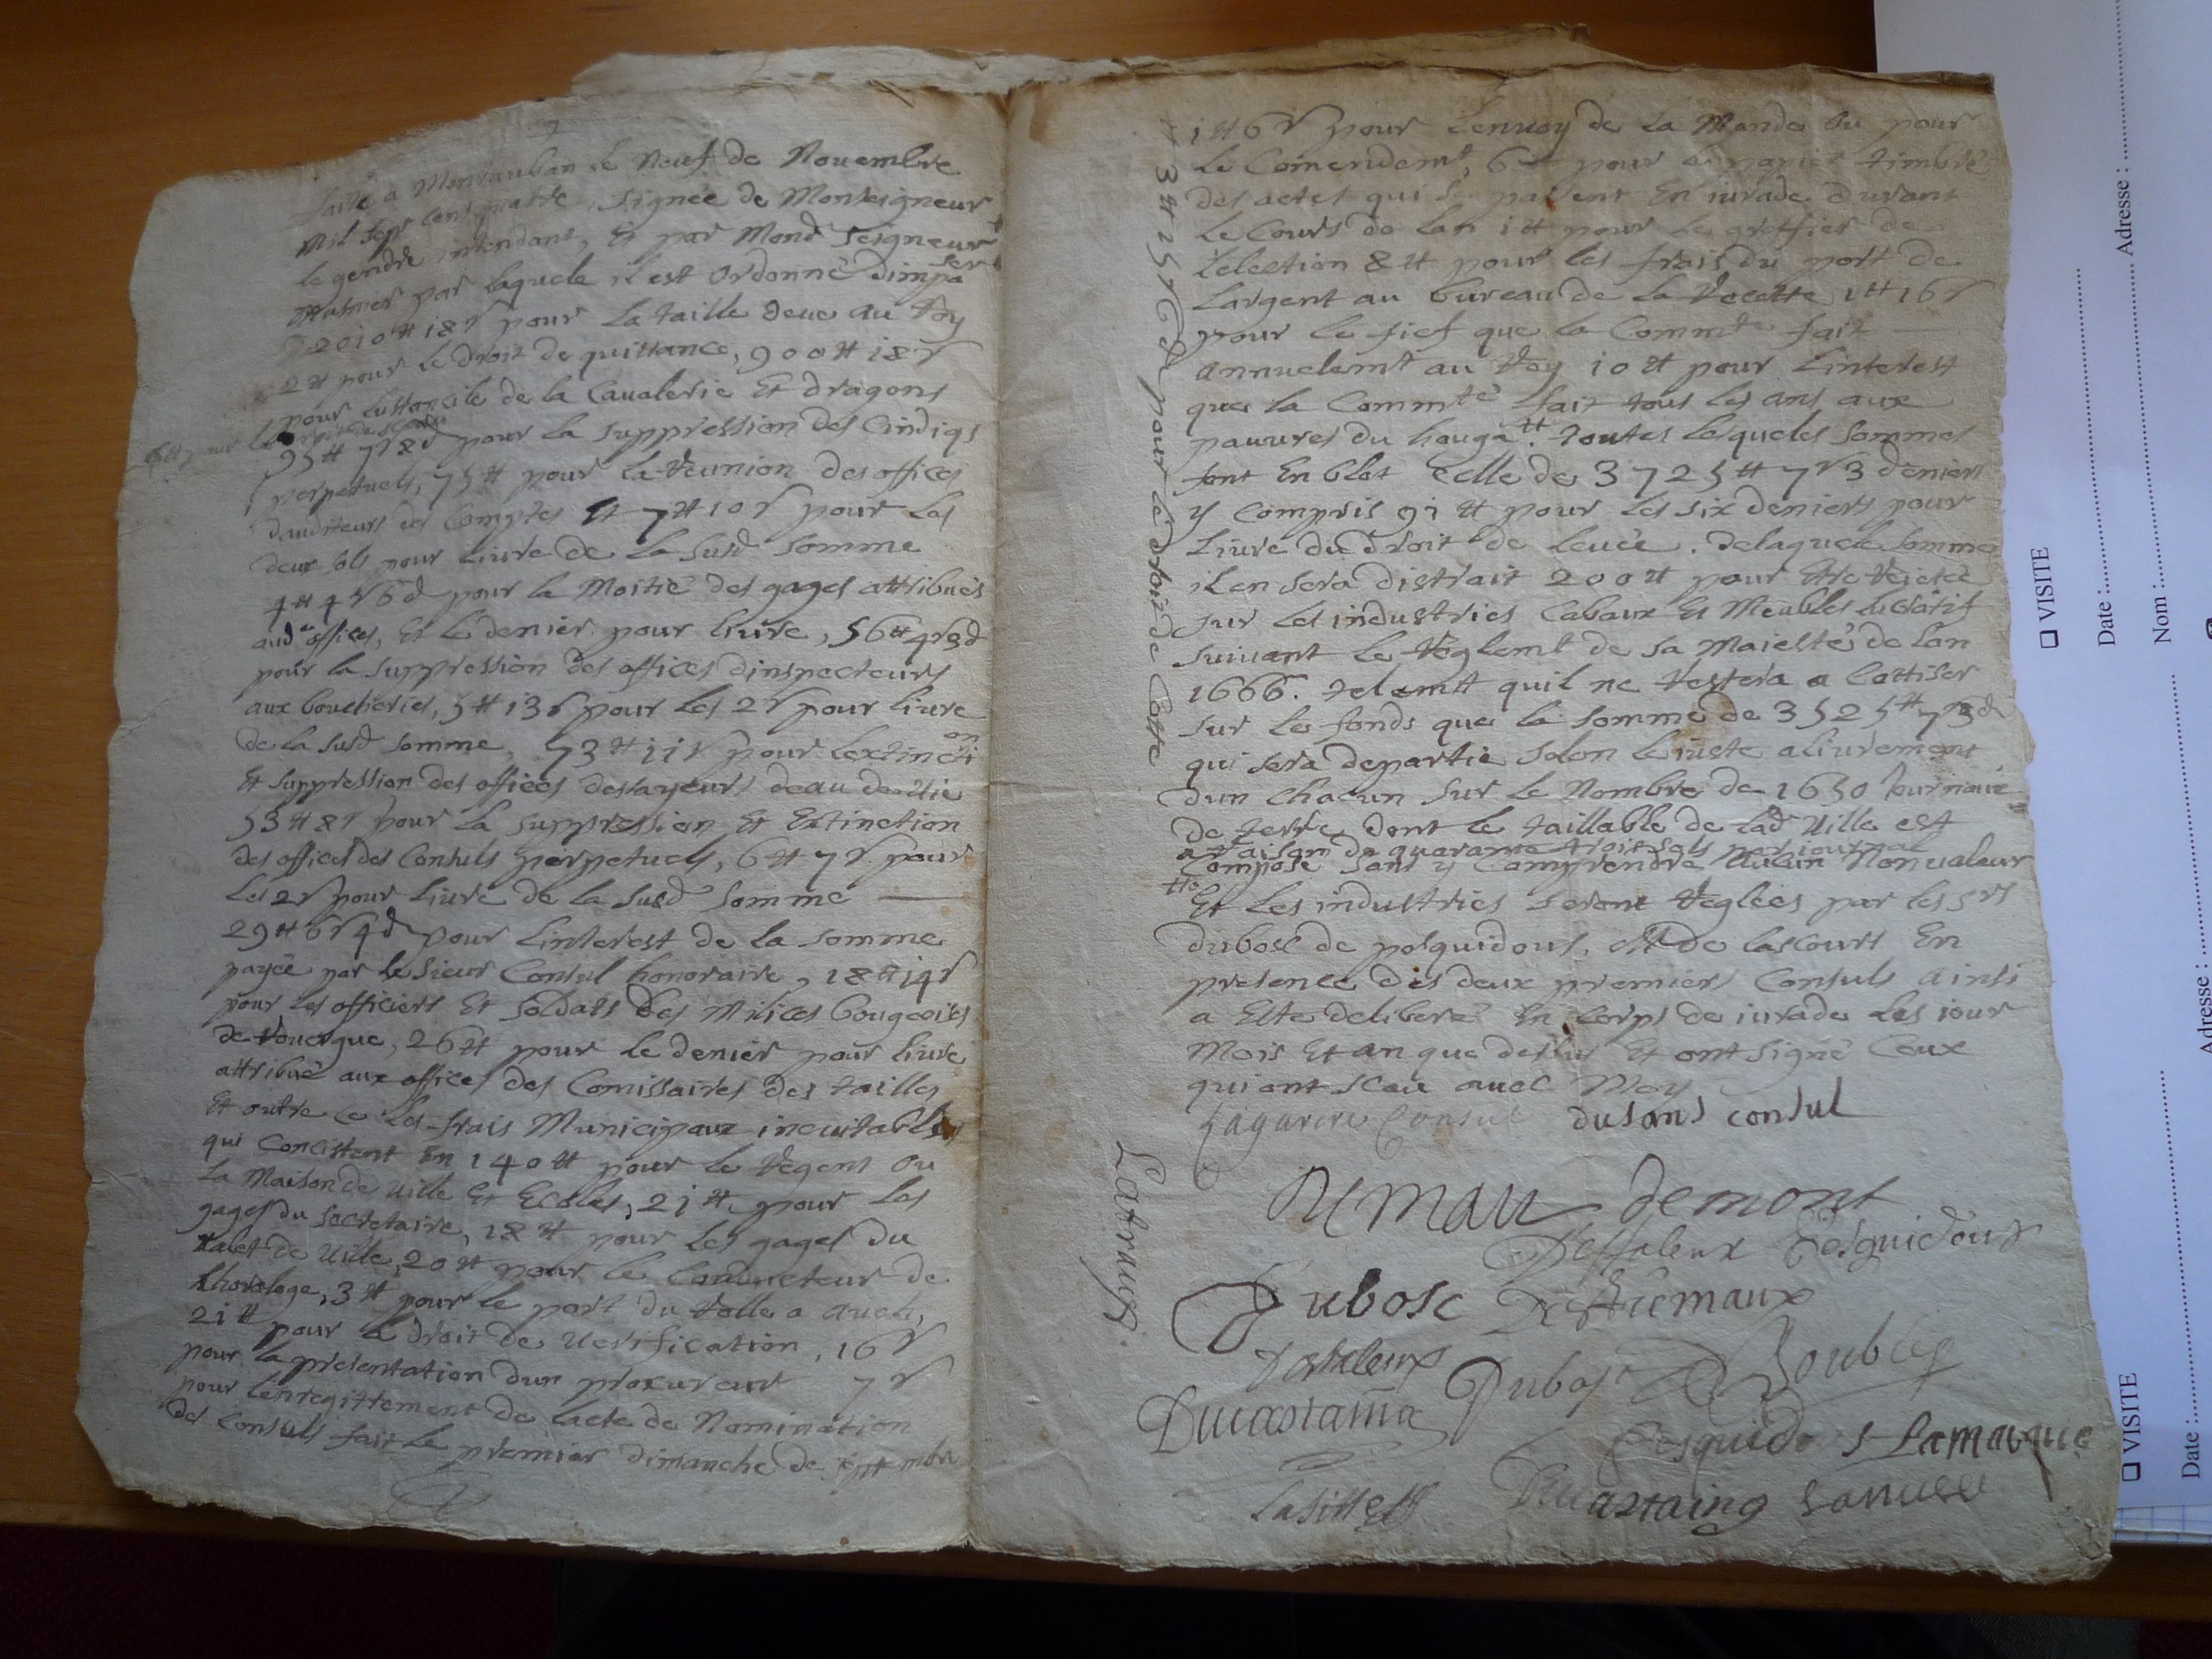 faite a Montauban le Neuf de Novembre
Mil sept cens quatre, signée de Monseigneur
le gendre intendant, Et par Mond Seigneur
par laquele il est ordonné dimpo
ser
2010 ₶ 18 s pour la taille deue au Roy
2 ₶ pour Le droit de quittance, 900 ₶ 18 s
pour lustancile de la Cavalerie Et dragons
95 ₶ 7 s 8 d pour la suppression des Cindiqs
perpetuels, 75 ₶ pour la Reunion des offices
dauditeurs des Comptes Et 7 ₶ 10 s pour Les
deux sols pour Livre de La susd somme
4 ₶ 4 s 6 d pour la Moitié des gages attribués
aud offices, Et Le denier pour livre, 56 ₶ 4 s 3 d
pour la suppression des offices dinspecteurs
aux boucheries, 5 ₶ 13 s pour les 2 s pour livre
de la susd somme, 73 ₶ 11 s pour Lextincti
on
Et suppression des offices dessayeurs deau de vie
53 ₶ 8 s pour La suppression Et Extinction
des offices des Consuls perpetuels, 6 ₶ 7 s pour
Les 2 s pour Livre de la susd somme
29 ₶ 6 s 4 d pour Linterest de la somme
payée par le sieur Consul honoraire, 18 ₶ 14 s
pour les officiers Et soldats des Milices bougeoises
de Rouergue, 26 ₶ pour le denier pour livre
attribué aux offices des Comissaires des tailles
Et outre ce les frais Municipaux inevitables
qui Concistent En 140 ₶ pour le Regent ou
La Maison de ville Et Ecoles, 21 ₶ pour les
gages du secretaire, 18 ₶ pour Les gages du
valet de ville, 20 ₶ pour le Conducteur de
Lhorologe, 3 ₶ pour le port du Rolle a Auch,
21 ₶ pour le droit de verification, 16 s
pour la presentation dun procureur 7 s
pour lenregittrement de lacte de Nomination
des Consuls fait le premier dimanche de septembre
1 ₶ 6 s pour Lenvoy de La Mande ou pour
Le Comendemt, 6 ₶ pour le papier timbré
des actes qui se passent En iurade durant
Le Cours de lan 1 ₶ pour le greffier de
Lelection 8 ₶ pour les frais du port de
Largent au bureau de la Recette 1 ₶ 16 s
pour le fief que la Commté fait
annuelemt au Roy 10 ₶ pour Linterest
que la Commté fait tous les ans aux
pauvres du houga. Toutes lesqueles sommes
font En blot Celle de 3725 ₶ 7 s 3 deniers
y Compris 91 ₶ pour les six deniers pour
Livre du droit de levée. delaquele somme
il en sera distrait 200 ₶ pour Etre Rejetée
sur les industries Cabaux Et Meubles lucratif
suivant le Reglemt de sa Maiesté de lan
1666. telemt quil ne Restera a Cottiser
sur les fonds que la somme de 3525 ₶ 7 s 3 d
qui sera departie selon le iuste alivrement
dun Chacun sur le Nombre de 1650 Journaux
de terre dont le taillable de lad Ville est
a raison de quarante trois sols par journal
Composé sans y Comprendre Aucun Nonvaleur
Et Les industries seront Reglées par les srs
dubosc de posquidous, Et de lascourt En
presence des deux premiers Consuls ainsi
a Este deliberé En Corps de iurade Les iour
Mois Et an que dessus Et ont signé Ceux
qui ont sceu avec Moy
3 ₶ 2 s 6 d pour le droit de Cotte
Lagarere Consul dusans consul
demont
Posquidoux
Dubosc
Dubosc
Ducastaing
Lamarque
Ducastaing
Labrugs
VISITE
Date :
Nom :
Adresse :
VISITE
Date :
Adresse :